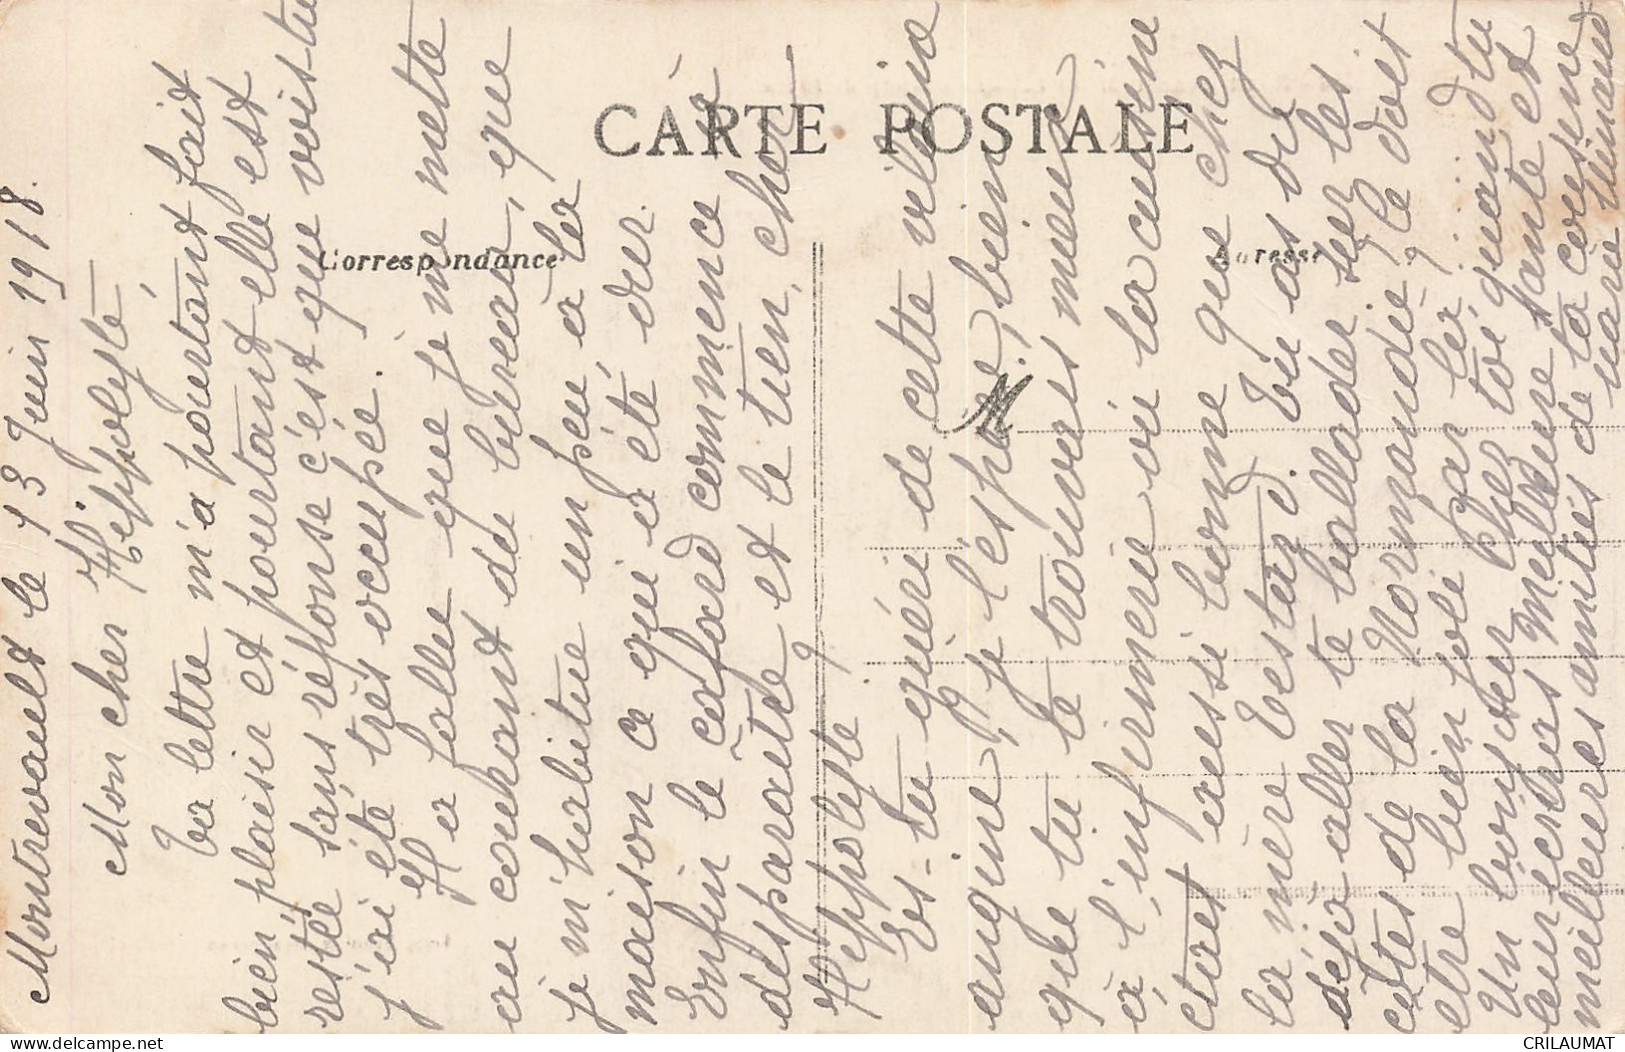 CARTE POSTALE
Correspondance
Adresse
Montrevault le 13 Juin 1918.
Mon cher Hippolyte,
Ta lettre m'a pourtant fait
bien plaisir et pourtant elle est
restée sans réponse c'est que vois-tu
j'ai été très occupée.
Il a fallu que je me mette
au courant du bureau, que
je m'habitue un peu à la
maison ce qui a été dur.
Enfin le cafard commence à
disparaître et le tien, cher
Hippolyte ?
Es-tu guéri de cette vilaine
angine, je l'espère, bien
que tu te trouves mieux
à l'infirmerie où la cuisine
était aussi bonne que chez
la mère Testard. Tu as dû
déjà aller te ballader sur les
côtes de la Normandie, ce doit
être bien joli par là,
Un bonjour chez toi quand tu
leur écriras Meilleure santé et
meilleures amitiés de ta cousine
M
CRILAUMAT